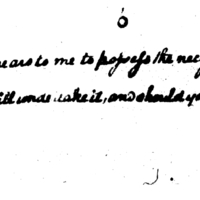 ears to me to possess the nec
ill undertake it, and should yo